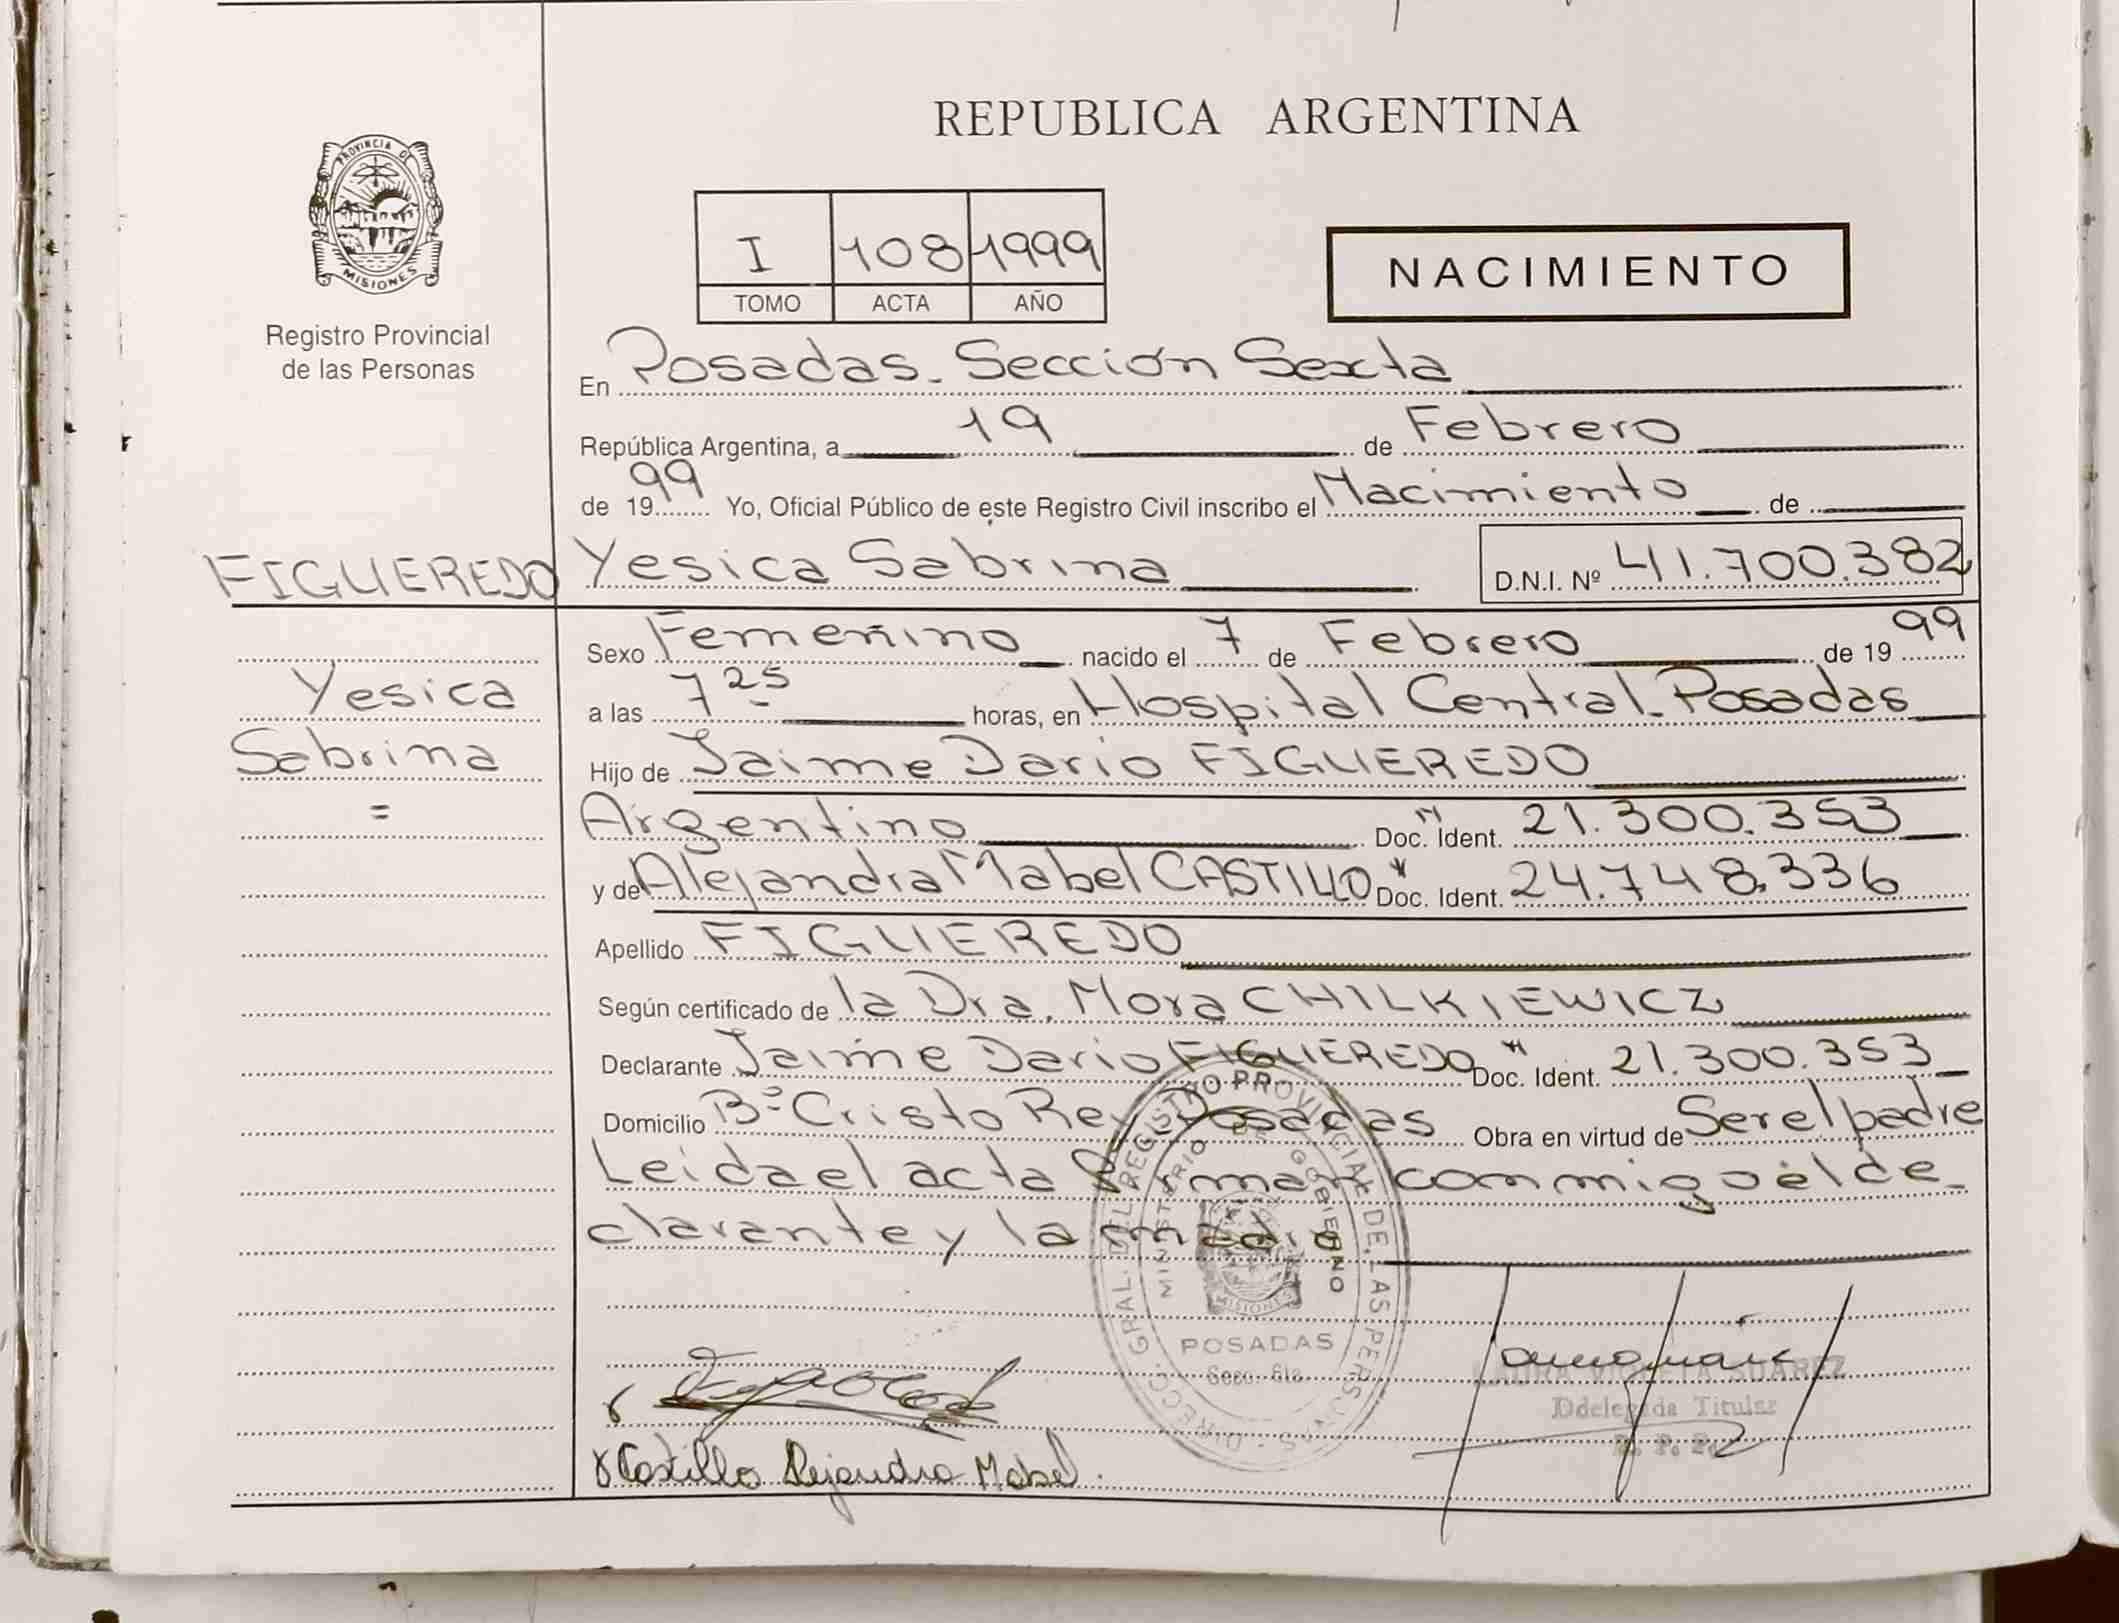 REPUBLICA ARGENTINA
PROVINCIA DE
MISIONES
Registro Provincial
de las Personas
I 108 1999
TOMO ACTA AÑO
NACIMIENTO
En Posadas. Sección Sexta
República Argentina, a 19 de Febrero
de 1999 Yo, Oficial Público de este Registro Civil inscribo el Nacimiento de
FIGUEREDO Yesica Sabrina D.N.I. Nº 41.700.382
Sexo Femenino nacido el 7 de Febrero de 1999
Yesica
a las 7 25 horas, en Hospital Central. Posadas
Sabrina
Hijo de Jaime Dario FIGUEREDO
=
Argentino Doc. Ident. 21.300.353
y de Alejandra Mabel CASTILLO Doc. Ident. 24.748.336
Apellido FIGUEREDO
Según certificado de la Dra. Mora CHILKIEWICZ
Declarante Jaime Dario FIGUEREDO Doc. Ident. 21.300.353
Domicilio Bº Cristo Rey Posadas Obra en virtud de Ser el padre
Leida el acta firman conmigo el de-
clarante y la madre
DIRECC. GRAL. DEL REGISTRO PROVINCIAL DE LAS PERSONAS
MINISTERIO DE GOBIERNO
MISIONES
POSADAS
Secc. 6ta.
LAURA VIOLETA SUAREZ
Ddelegada Titular
R. P. P.
Castillo Alejandra Mabel.